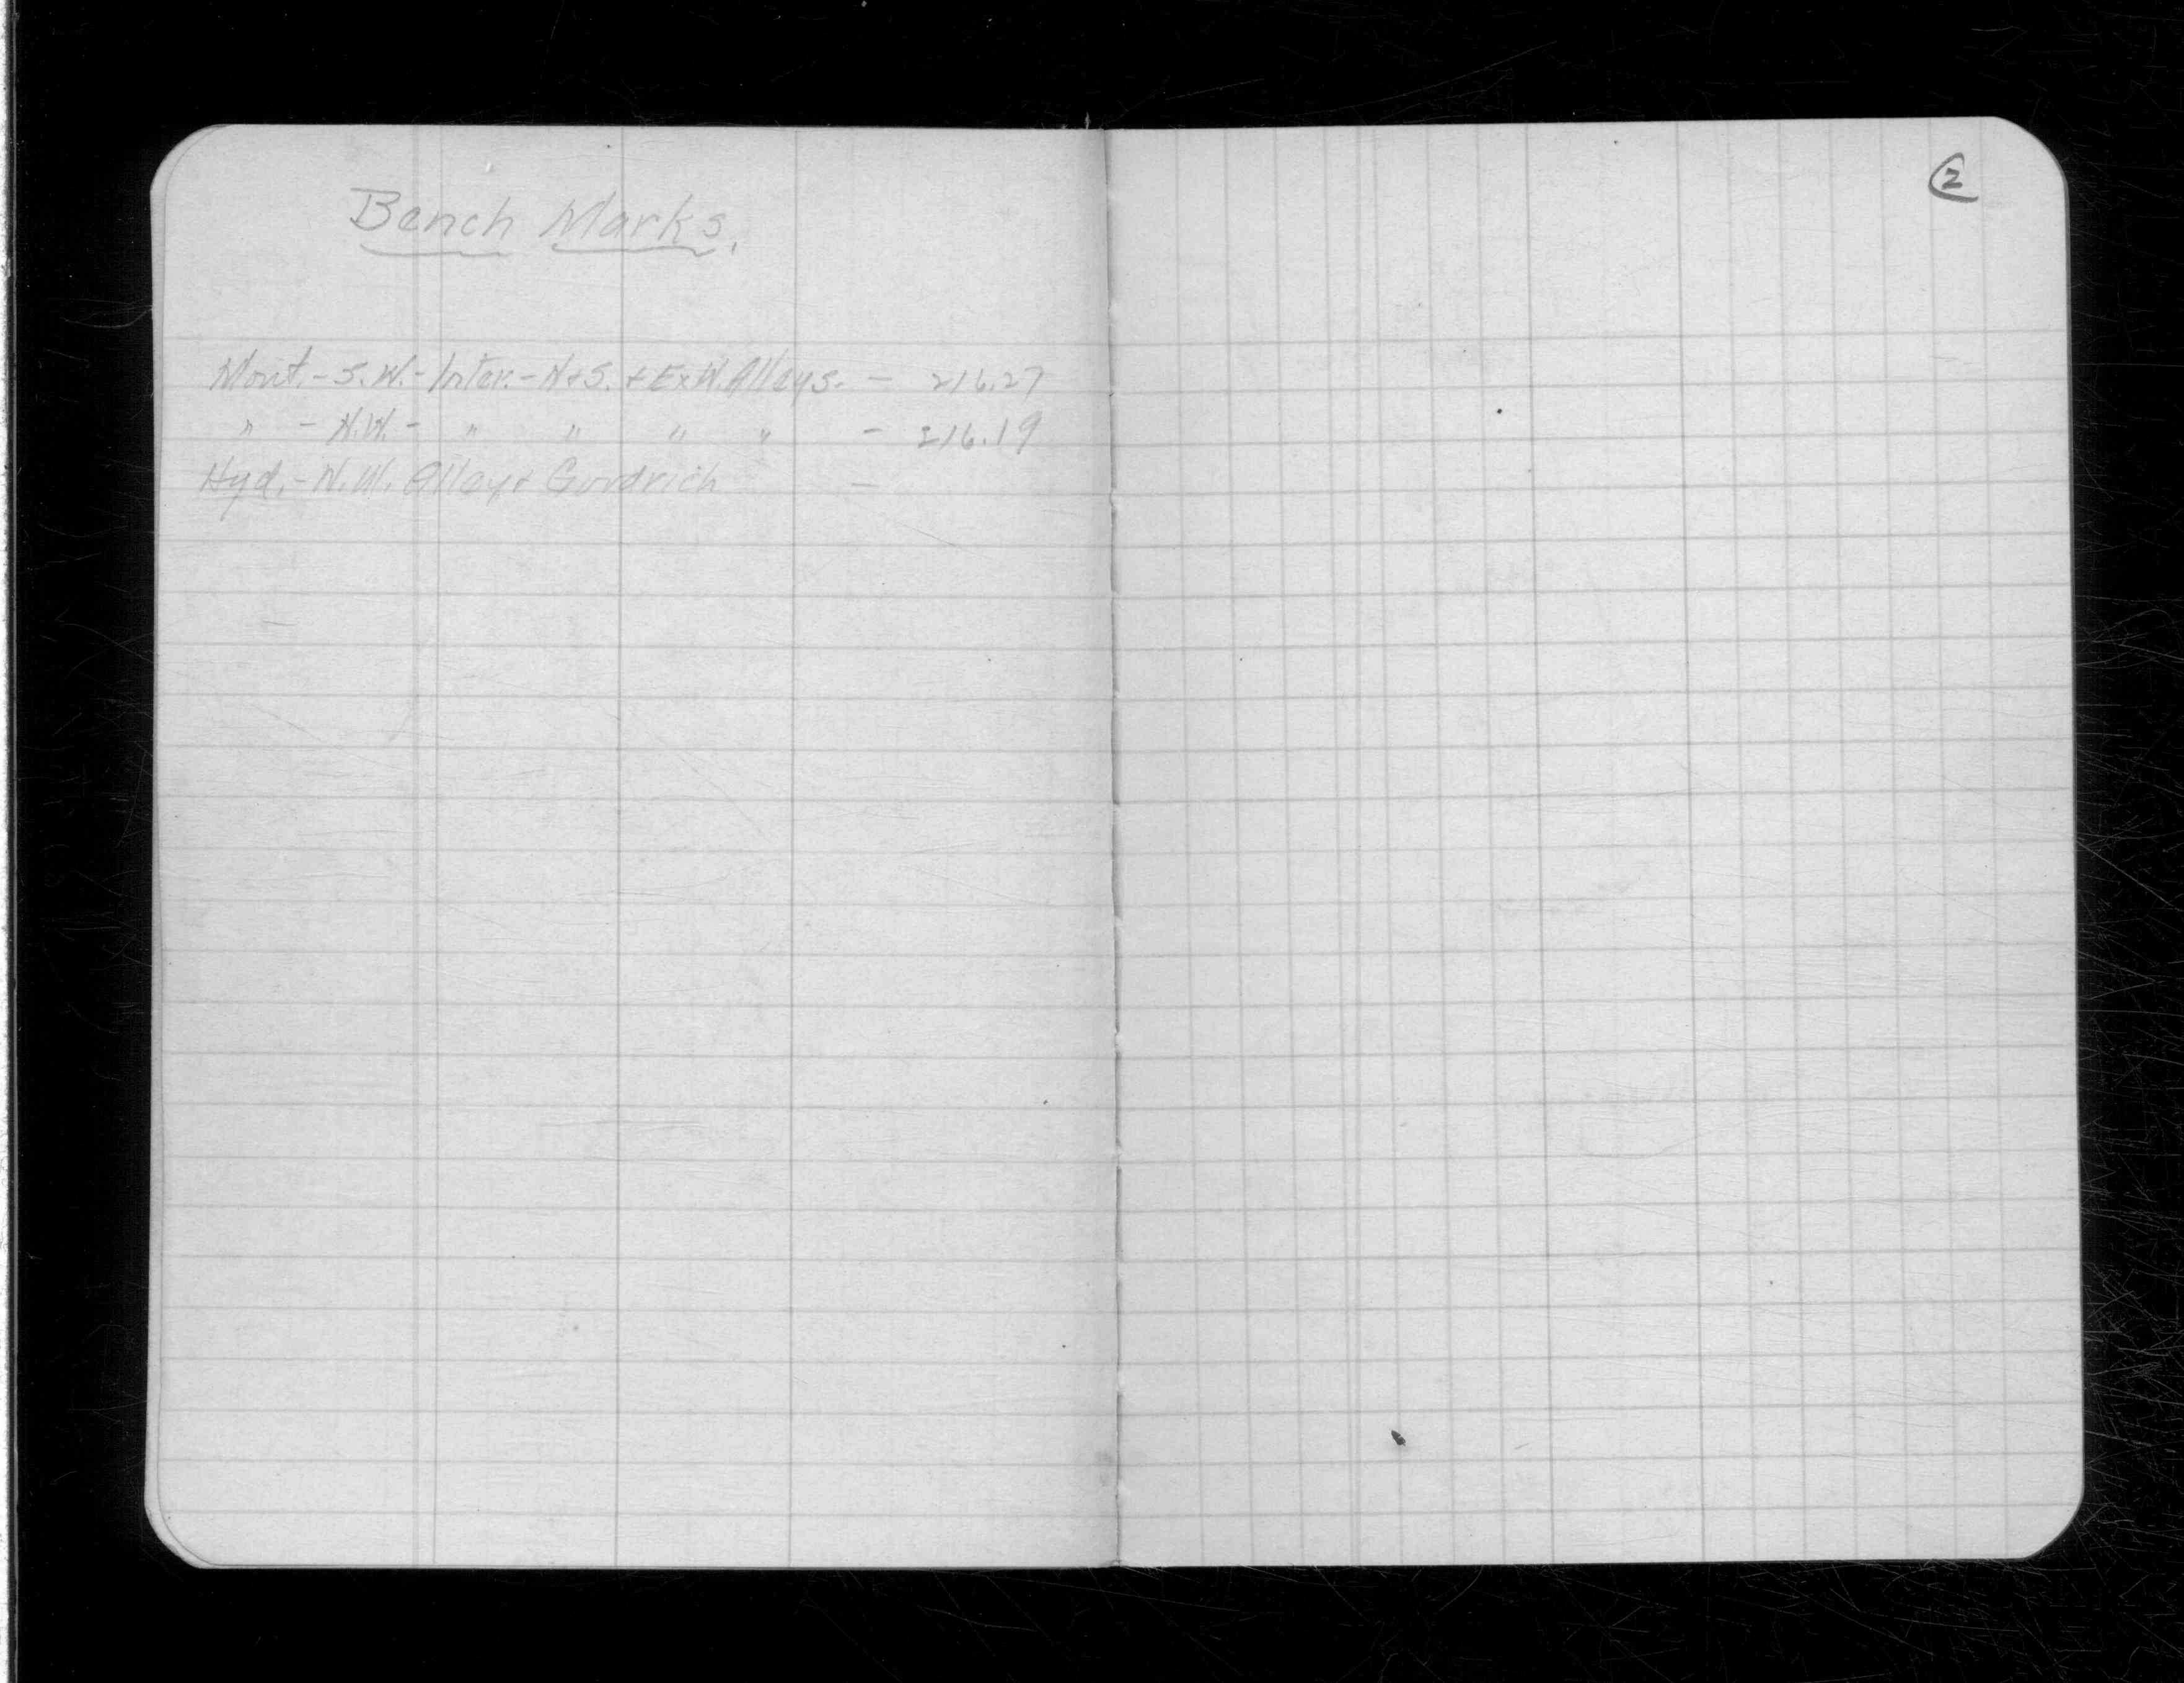 Bench Marks.
2
Mont. - S.W. - Inter. - N+S. + E+W. Alleys. - 216.27
" - N.W. - " " " " - 216.19
Hyd. - N.W. Alley + Goodrich -